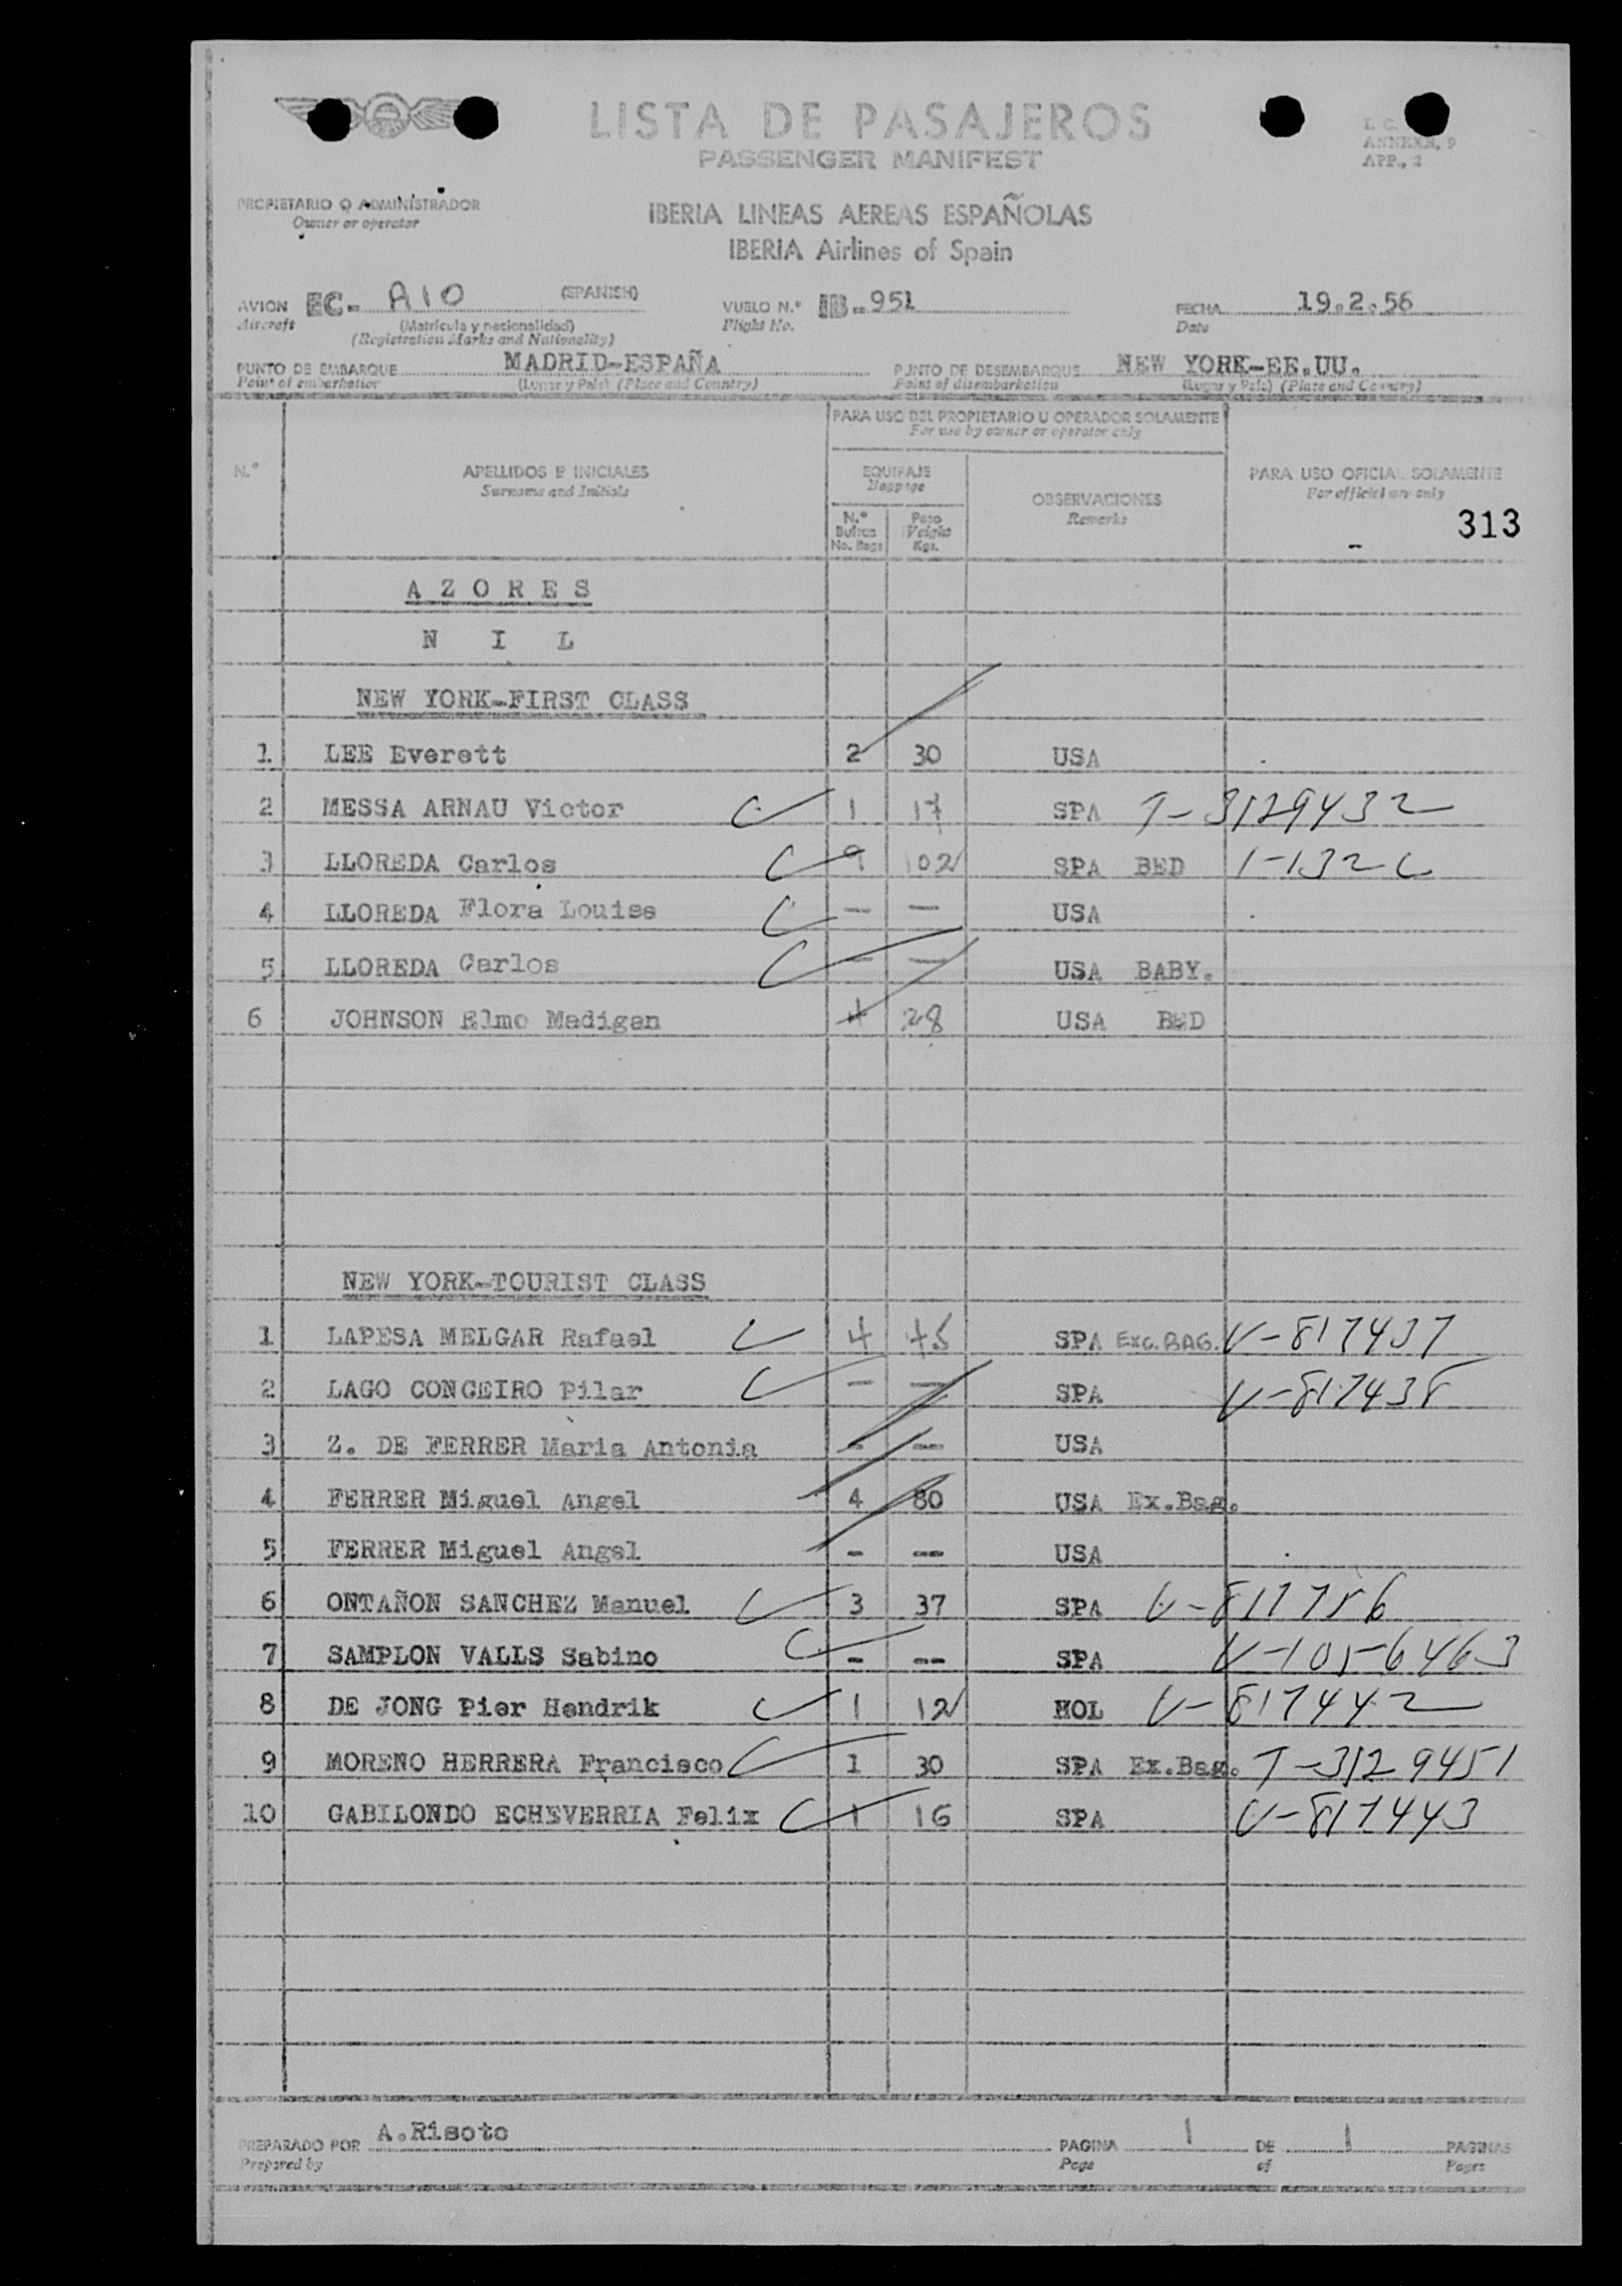 LISTA DE PASAJEROS
PASSENGER MANIFEST
ANNEXE, 9
APP., 2
PROPIETARIO O ADMINISTRADOR
Owner or operator
IBERIA LINEAS AEREAS ESPAÑOLAS
IBERIA Airlines of Spain
AVION EC- AIO (SPANISH) VUELO N.º IB- 951 FECHA 19.2.56
Aircraft (Matricula y nacionalidad) Flight No. Date
(Registration Marks and Nationality)
PUNTO DE EMBARQUE MADRID-ESPAÑA PUNTO DE DESEMBARQUE NEW YORK-EE.UU.
Point of embarkation (Lugar y País) (Place and Country) Point of disembarkation (Lugar y País) (Place and Country)
PARA USO DEL PROPIETARIO U OPERADOR SOLAMENTE
For use by owner or operator only
N.º APELLIDOS E INICIALES EQUIPAJE OBSERVACIONES PARA USO OFICIAL SOLAMENTE
Surname and Initials Baggage Remarks For official use only
N.º Bultos Peso
No. Bags Weight Kgs.
313
AZORES
NIL
NEW YORK-FIRST CLASS
1 LEE Everett 2 30 USA
2 MESSA ARNAU Victor 1 17 SPA T-3129432
3 LLOREDA Carlos 9 102 SPA BED
4 LLOREDA Flora Louise — — USA
5 LLOREDA Carlos — — USA BABY.
6 JOHNSON Elmo Madigan 28 USA BED
NEW YORK-TOURIST CLASS
1 LAPESA MELGAR Rafael 4 45 SPA EXC. BAG. V-817437
2 LAGO CONCEIRO Pilar — — SPA V-817438
3 Z. DE FERRER Maria Antonia - -- USA
4 FERRER Miguel Angel 4 80 USA Ex.Bag.
5 FERRER Miguel Angel - -- USA
6 ONTAÑON SANCHEZ Manuel 3 37 SPA
7 SAMPLON VALLS Sabino - -- SPA V-1056463
8 DE JONG Pier Hendrik 1 12 HOL V-817442
9 MORENO HERRERA Francisco 1 30 SPA Ex.Bag. T-3129451
10 GABILONDO ECHEVERRIA Felix 1 16 SPA V-817443
PREPARADO POR A.Risoto PAGINA 1 DE 1 PAGINAS
Prepared by Page of Pages